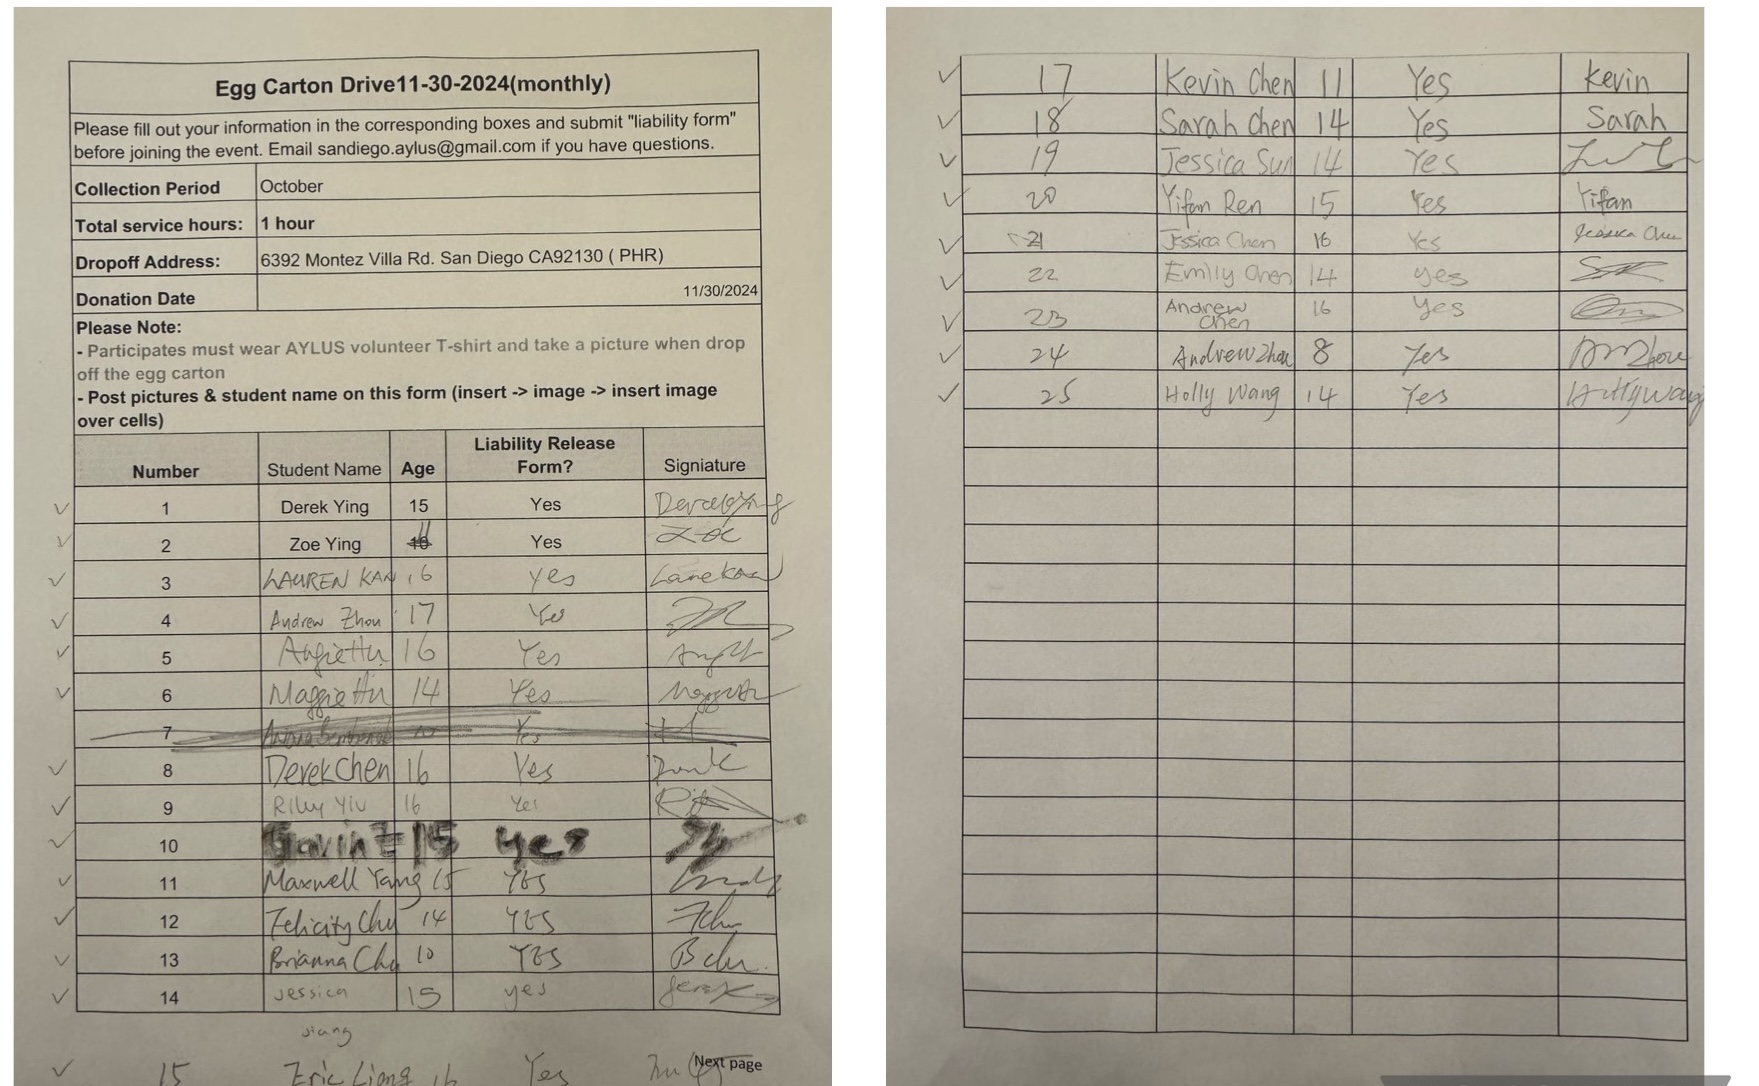 Egg Carton Drive11-30-2024(monthly)
Please fill out your information in the corresponding boxes and submit "liability form"
before joining the event. Email sandiego.aylus@gmail.com if you have questions.
Collection Period October
Total service hours: 1 hour
Dropoff Address: 6392 Montez Villa Rd. San Diego CA92130 ( PHR)
Donation Date 11/30/2024
Please Note:
- Participates must wear AYLUS volunteer T-shirt and take a picture when drop
off the egg carton
- Post pictures & student name on this form (insert -> image -> insert image
over cells)
Number Student Name Age Liability Release Form? Signiature
✓ 1 Derek Ying 15 Yes Derek Ying
✓ 2 Zoe Ying 11 Yes Zoe
✓ 3 LAUREN KAN 16 yes
✓ 4 Andrew Zhou 17 Yes
✓ 5 Angie Hu 16 Yes
✓ 6 Maggie Hu 14 Yes
7 Yes
✓ 8 Derek Chen 16 Yes
✓ 9 Riley Yiu 16 Yes
✓ 10 Gavin 15 yes
✓ 11 Maxwell Yang 15 YES
✓ 12 Felicity Chu 14 YES
✓ 13 Brianna Chu 10 YES B chu.
✓ 14 Jessica 15 yes
Jiang
✓ 15 Eric Liang 16 Yes
Next page
✓ 17 Kevin Chen 11 Yes Kevin
✓ 18 Sarah Chen 14 Yes Sarah
✓ 19 Jessica Sun 14 Yes
✓ 20 Yifan Ren 15 Yes Yifan
✓ 21 Jessica Chen 16 Yes Jessica Chen
✓ 22 Emily Chen 14 yes
✓ 23 Andrew Chen 16 Yes
✓ 24 Andrew Zhou 8 Yes
✓ 25 Holly Wang 14 Yes Holly Wang